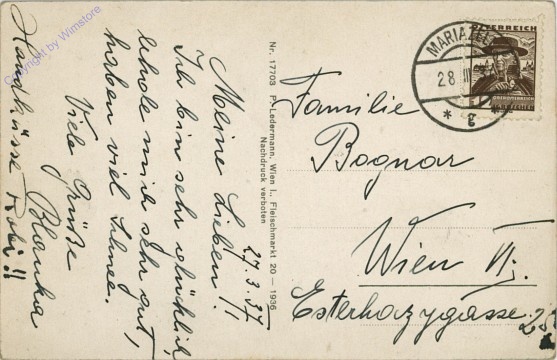 27.3.37
Meine Lieben!!
Ich bin sehr glücklich,
erhole mich sehr gut,
haben viel Schnee.
Viele Grüße
Blanka
Handküsse Robi!!
Nr. 17703 P. Ledermann, Wien I., Fleischmarkt 20 – 1936
Nachdruck verboten
MARIAZELL
28 III
* g
ÖSTERREICH
Familie
Bognar
Wien VI.
Esterhazygasse 25
Copyright by Wimstore